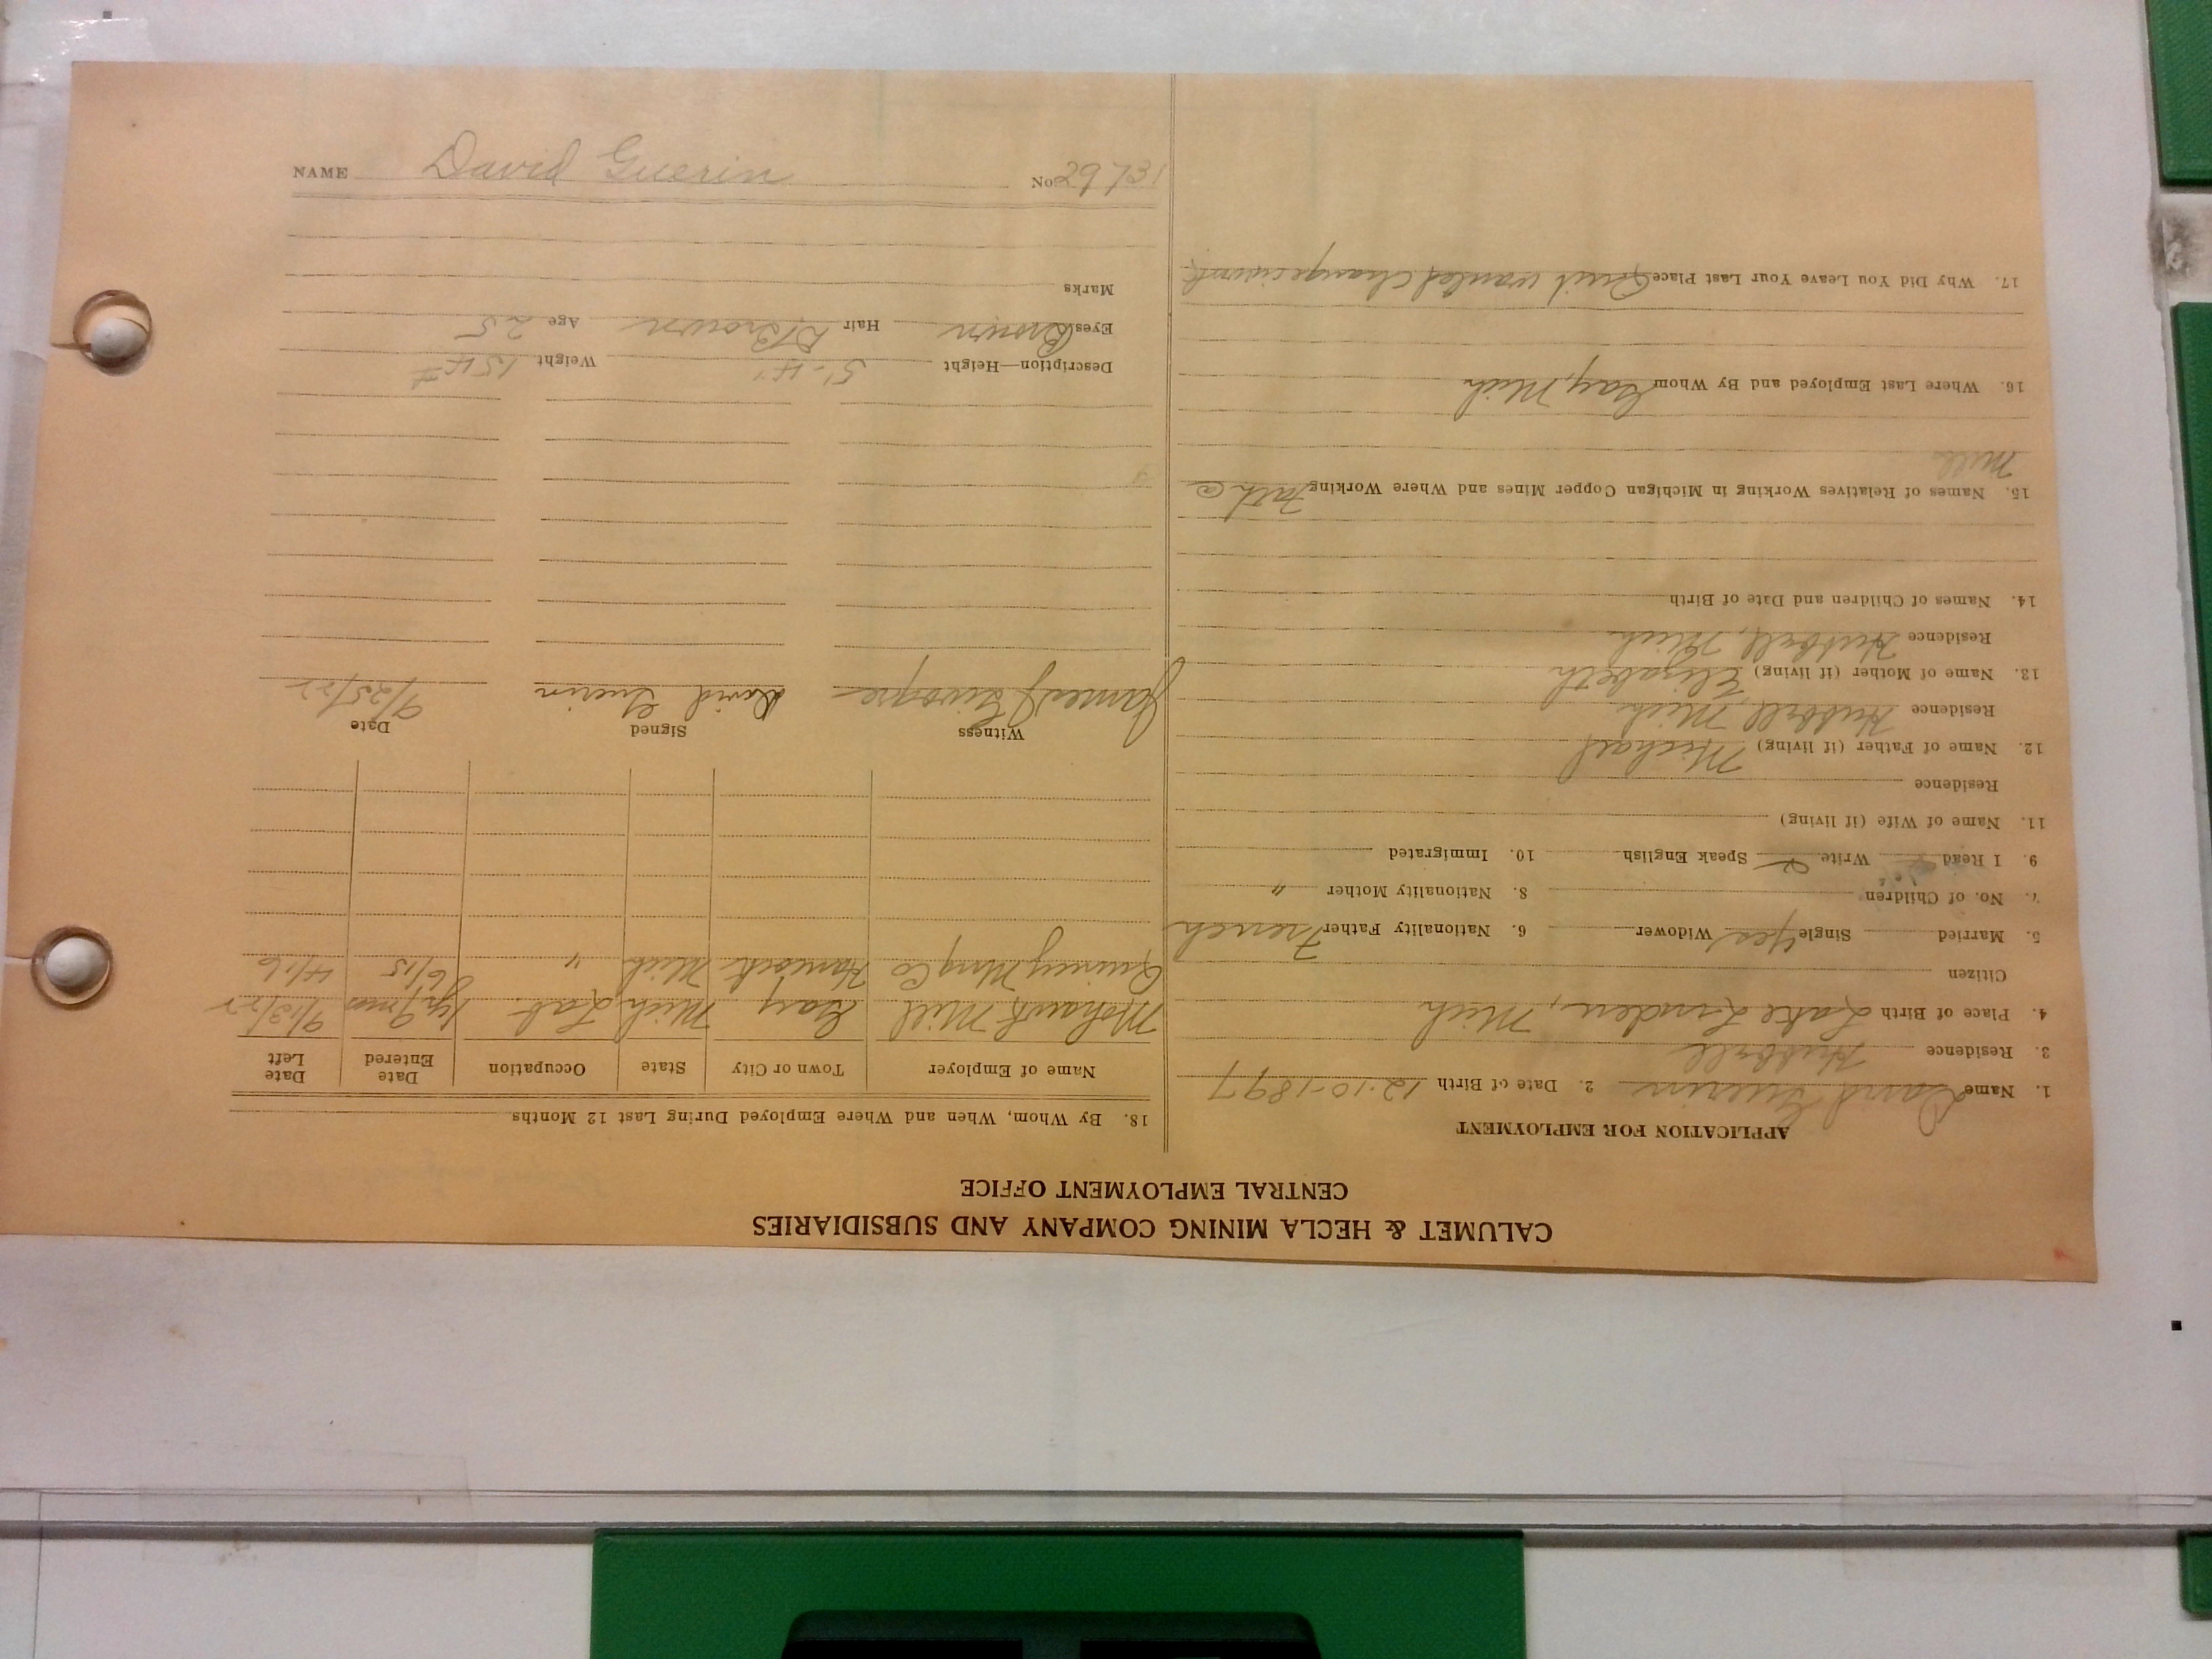 CALUMET & HECLA MINING COMPANY AND SUBSIDIARIES
CENTRAL EMPLOYMENT OFFICE
APPLICATION FOR EMPLOYMENT
1. Name David Guerin 2. Date of Birth 12-10-1897
3. Residence Hubbell
4. Place of Birth Lake Linden, Mich
Citizen
5. Married Single Yes Widower 6. Nationality Father French
7. No. of Children 8. Nationality Mother "
9. I Read Write Speak English 10. Immigrated
11. Name of Wife (if living)
Residence
12. Name of Father (if living) Michael
Residence Hubbell, Mich
13. Name of Mother (if living) Elizabeth
Residence Hubbell, Mich
14. Names of Children and Date of Birth
15. Names of Relatives Working in Michigan Copper Mines and Where Working Fath @
Mills
16. Where Last Employed and By Whom Gay, Mich
17. Why Did You Leave Your Last Place Quit wanted change
18. By Whom, When and Where Employed During Last 12 Months
Name of Employer Town or City State Occupation Date Entered Date Left
Mohawk Mill Gay Mich Lab. 1yr 9mos 9/13/22
Quincy Mng Co Hancock Mich " 6/15 4/16
Witness Signed Date
James David Guerin 9/25/22
Description—Height 5'-4" Weight 154#
Eyes Brown Hair D Brown Age 25
Marks
NAME David Guerin No. 29731